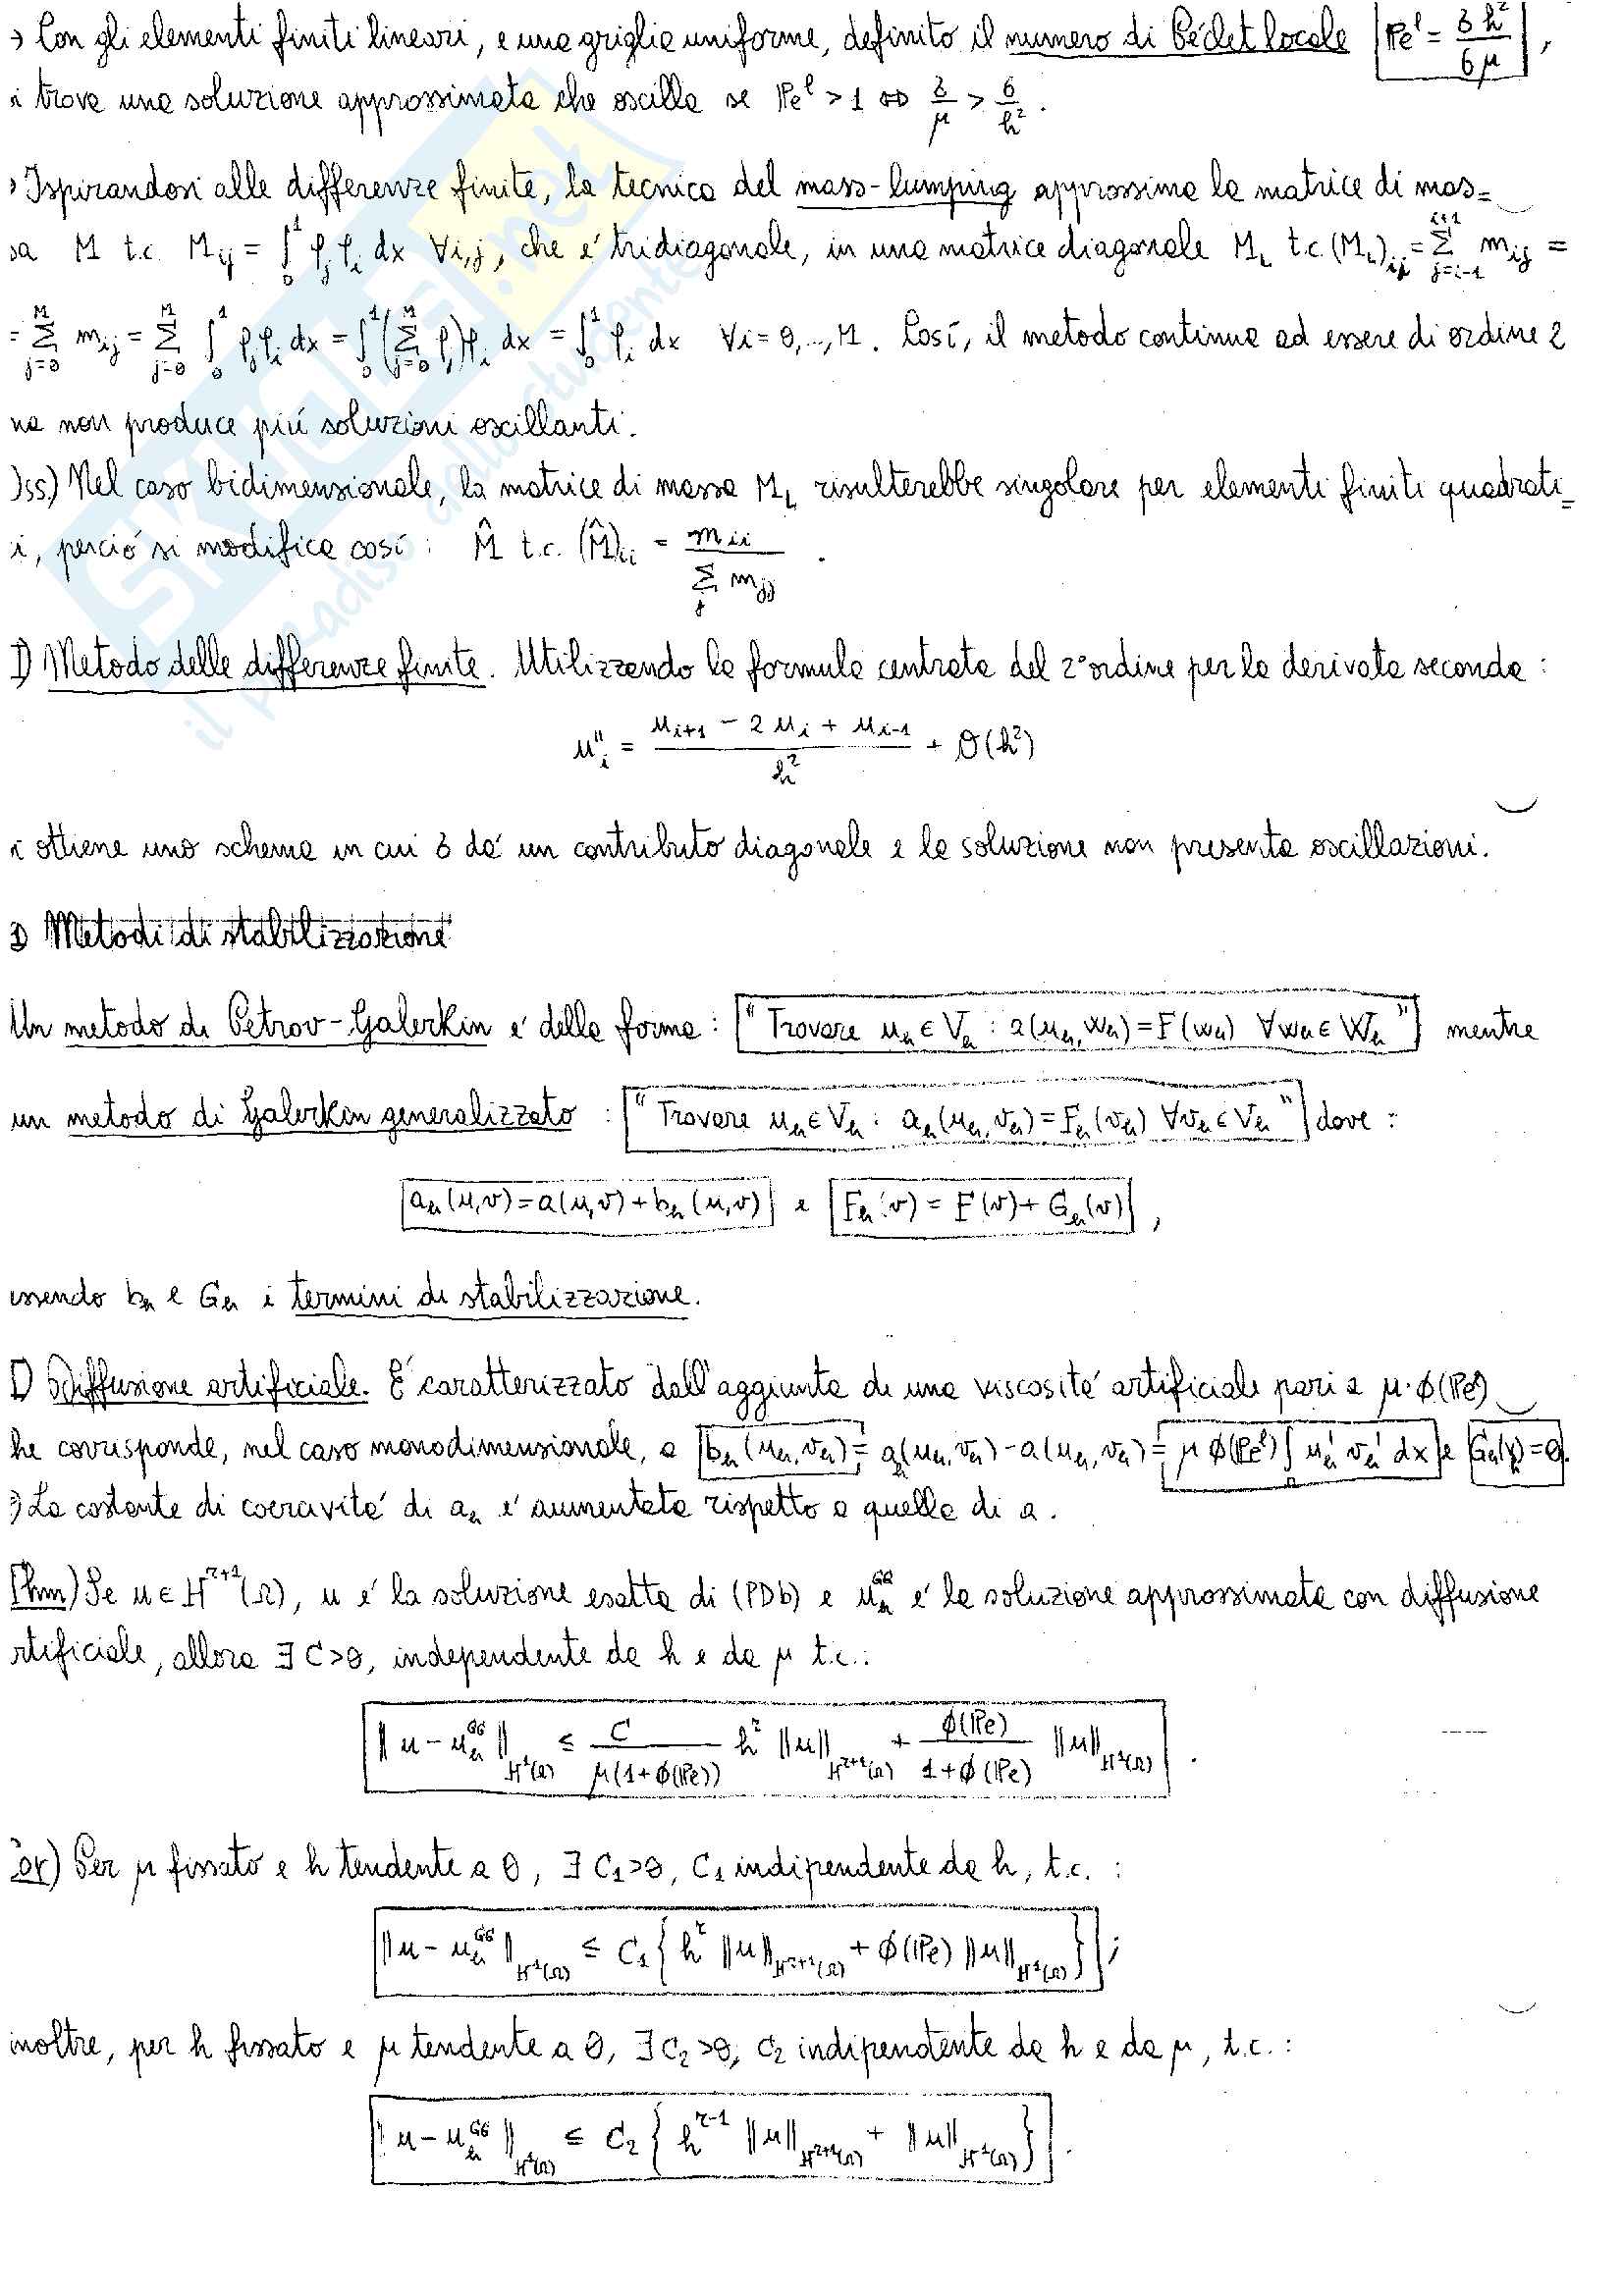 → Con gli elementi finiti lineari, e una griglia uniforme, definito il numero di Péclet locale |Peˡ = 3h²/6μ|,
i trova una soluzione approssimata che oscilla se Peˡ > 1 ⇔ 3/μ > 6/h².
Ispirandosi alle differenze finite, la tecnica del mass-lumping approssima la matrice di mas=
sa M t.c. Mij = ∫₀¹ φj φi dx ∀i,j, che è tridiagonale, in una matrice diagonale M_L t.c. (M_L)ii = Σ_{j=i-1}^{i+1} mij =
= Σ_{j=0}^{M} mij = Σ_{j=0}^{M} ∫₀¹ φjφi dx = ∫₀¹ (Σ_{j=0}^{M} φj)φi dx = ∫₀¹ φi dx ∀i=0,..,M. Così, il metodo continua ad essere di ordine 2
ma non produce più soluzioni oscillanti.
)ss.) Nel caso bidimensionale, la matrice di massa M_L risulterebbe singolare per elementi finiti quadrati=
i, perciò si modifica così: M̂ t.c. (M̂)ii = mii / Σ_j mjj .
1) Metodo delle differenze finite. Utilizzando la formula centrata del 2° ordine per la derivata seconda:
u"i = (ui+1 - 2ui + ui-1)/h² + O(h²)
i ottiene uno schema in cui 3 dà un contributo diagonale e la soluzione non presenta oscillazioni.
3) Metodi di stabilizzazione
Un metodo di Petrov-Galerkin è della forma: |"Trovare uh ∈ Vh : a(uh, wh) = F(wh) ∀wh ∈ Wh"| mentre
un metodo di Galerkin generalizzato : |"Trovare uh ∈ Vh : ah(uh, vh) = Fh(vh) ∀vh ∈ Vh"| dove :
|ah(u,v) = a(u,v) + bh(u,v)| e |Fh(v) = F(v) + Gh(v)|,
essendo bh e Gh i termini di stabilizzazione.
1) Diffusione artificiale. È caratterizzato dall'aggiunta di una viscosità artificiale pari a μ·φ(Peˡ)
he corrisponde, nel caso monodimensionale, a |bh(uh,vh) = ah(uh,vh) - a(uh,vh) = μ φ(Peˡ) ∫_Ω u'h v'h dx| e |Gh(v) = 0|.
) La costante di coercività di ah è aumentata rispetto a quella di a.
Thm) Se u ∈ H^{r+1}(Ω), u è la soluzione esatta di (PDb) e uh^{GG} è la soluzione approssimata con diffusione
rtificiale, allora ∃ C>0, independente da h e da μ t.c.:
‖u - uh^{GG}‖_{H¹(Ω)} ≤ C/(μ(1+φ(Pe))) h^r ‖u‖_{H^{r+1}(Ω)} + φ(Pe)/(1+φ(Pe)) ‖u‖_{H¹(Ω)} .
Cor) Per μ fissato e h tendente a 0, ∃ C₁>0, C₁ indipendente da h, t.c. :
‖u - uh^{GG}‖_{H¹(Ω)} ≤ C₁ { h^r ‖u‖_{H^{r+1}(Ω)} + φ(Pe) ‖u‖_{H¹(Ω)} };
inoltre, per h fissato e μ tendente a 0, ∃ C₂>0, C₂ indipendente da h e da μ, t.c. :
‖u - uh^{GG}‖_{H¹(Ω)} ≤ C₂ { h^{r-1} ‖u‖_{H^{r+1}(Ω)} + ‖u‖_{H¹(Ω)} }.